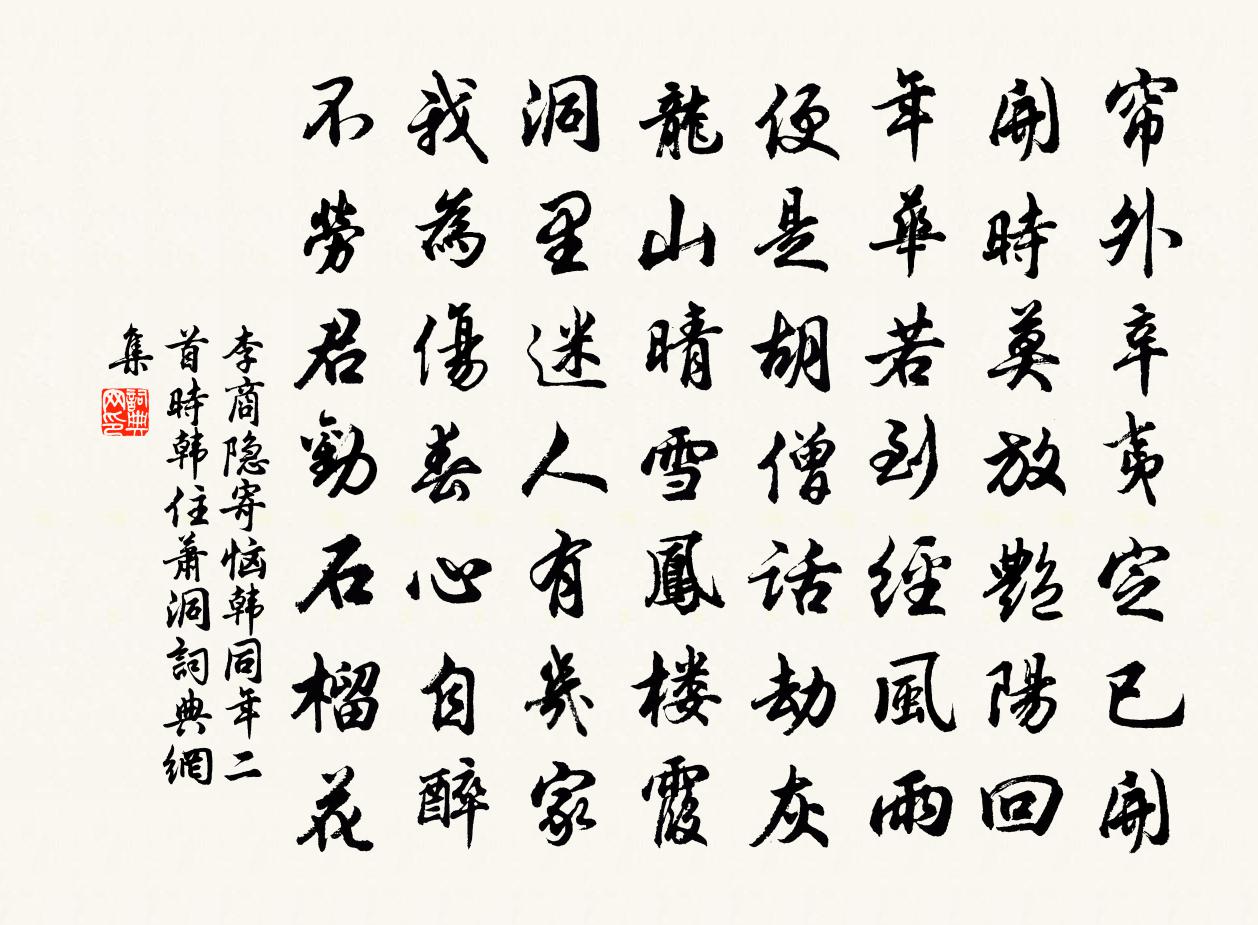 帘外辛夷定已開
開時莫放艷陽回
年華若到經風雨
便是胡僧話劫灰
龍山晴雪鳳楼霞
洞里迷人有幾家
我為傷春心自醉
不勞君勸石榴花
李商隐寄恼韩同年二
首時韩住萧洞詞典網
集
詞典网印